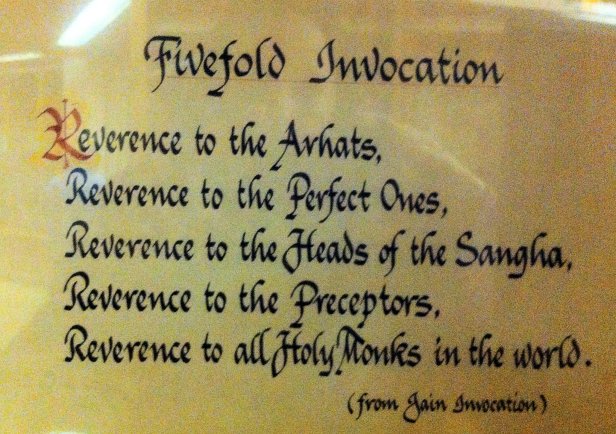 Fivefold Invocation
Reverence to the Arhats,
Reverence to the Perfect Ones,
Reverence to the Heads of the Sangha,
Reverence to the Preceptors,
Reverence to all Holy Monks in the world.
(from Jain Invocation)